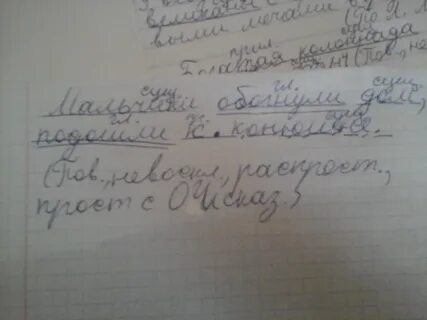 великана с
выми мечами
прил.
Белая колоннада
сущ. гл. сущ.
Мальчики обогнули дом,
гл. пр. сущ.
подошли к конюшне.
(Пов., невоскл., распрост.,
прост с ОЧ сказ.)